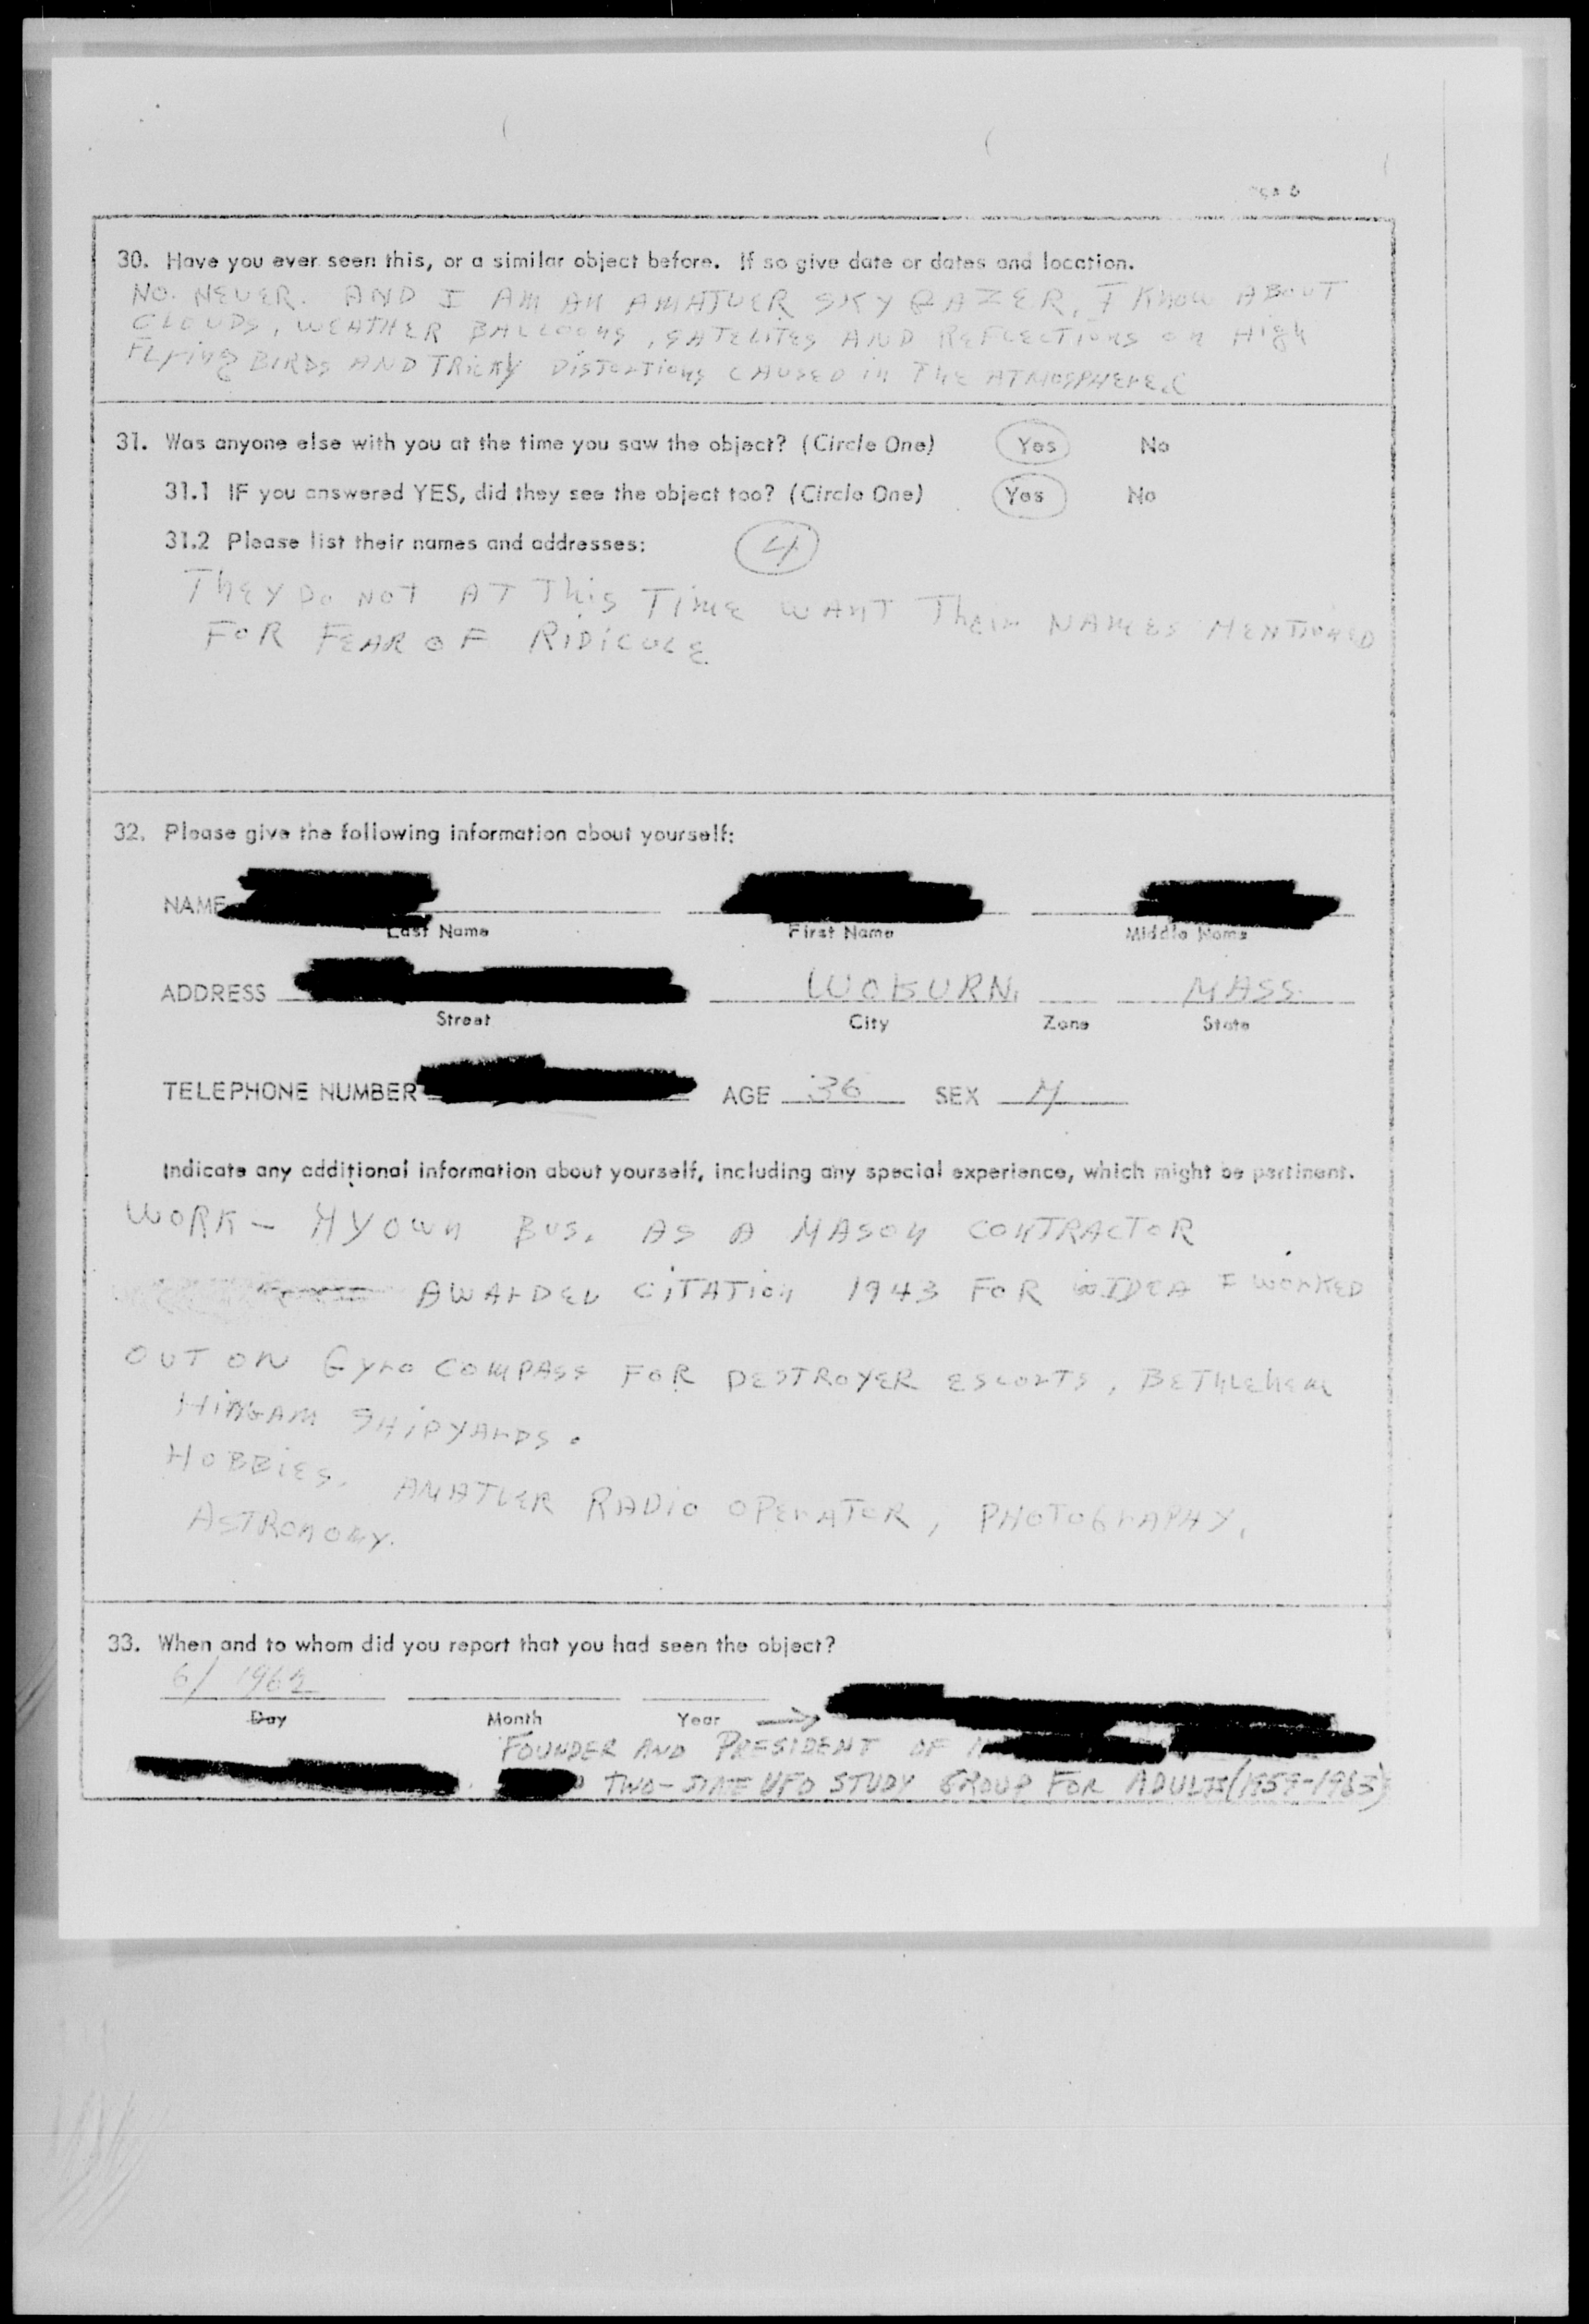 30. Have you ever seen this, or a similar object before. If so give date or dates and location.
NO. NEVER. AND I AM AN AMATUER SKY GAZER, I KNOW ABOUT
CLOUDS, WEATHER BALLOONS, SATELITES AND REFLECTIONS ON High
FLYING BIRDS AND TRICKY DISTORTIONS CAUSED in The ATMOSPHERE.
31. Was anyone else with you at the time you saw the object? (Circle One) Yes No
31.1 IF you answered YES, did they see the object too? (Circle One) Yes No
31.2 Please list their names and addresses: 4
They Do NOT AT This Time WANT Their NAMES MENTIONED
FOR FEAR OF RIDICULE
32. Please give the following information about yourself:
NAME
Last Name First Name Middle Name
ADDRESS WOBURN. MASS.
Street City Zone State
TELEPHONE NUMBER AGE 36 SEX M
Indicate any additional information about yourself, including any special experience, which might be pertinent.
WORK - MY OWN BUS. AS A MASON CONTRACTOR
AWARDED CITATION 1943 FOR IDEA I WORKED
OUT ON GYRO COMPASS FOR DESTROYER ESCORTS, BETHLEHEM
HINGAM SHIPYARDS.
HOBBIES. AMATUER RADIO OPERATOR, PHOTOGRAPHY,
ASTRONOMY.
33. When and to whom did you report that you had seen the object?
6/
Day Month Year →
FOUNDER AND PRESIDENT OF
TWO-STATE UFO STUDY GROUP FOR ADULTS (1959-1963)